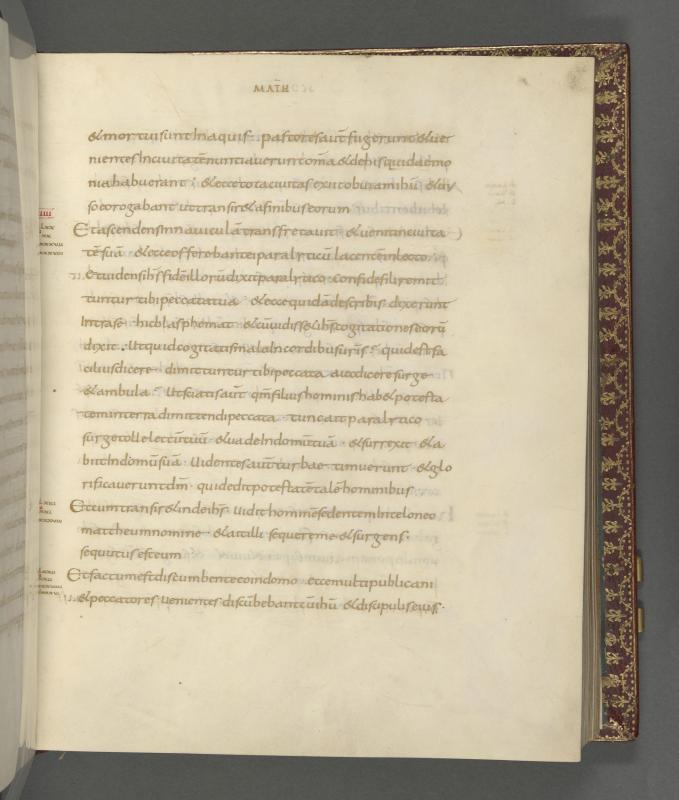 MATH
& mortui sunt In aquis · pastores aut̄ fugerunt & ue
nientes In ciuitatē nuntiauerunt om̄a & de his qui daemo
nia habuerant · & ecce tota ciuitas exiit obuiam ihū & ui
so eo rogabant ut transir& a finibus eorum
Et ascendens In nauiculā transfretauit & uenit In ciuita
tē suā · & ecce offerebant ei paraliticū Iacentē In lecto ·
& uidens ihs̄ fidē illorū dixit paralitico · confide fili remit
tuntur tibi peccata tua · & ecce quidā de scribis dixerunt
Intra se · hic blasphemat & cū uidiss& ihs̄ cogitationes eorū
dixit · Ut quid cogitatis mala In cordibus uris̄ · quid est fa
cilius dicere · dimittuntur tibi peccata aut dicere surge
& ambula · Ut sciatis aut̄ qm̄ filius hominis hab& potesta
tem in terra dimittendi peccata · tunc ait paralitico
surge tolle lectū tuū · & uade In domū tuā · & surrexit & a
biit In domū suā · Uidentes aut̄ turbae timuerunt · & glo
rificauerunt dm̄ · qui dedit potestatē talē hominibus
Et cum transir& inde ihs̄ · uidit hominē sedentem In teloneo
mattheum nomine · & ait illi sequere me & surgens ·
sequutus est eum
Et factum est discumbente eo in domo · ecce multi publicani
& peccatores uenientes discūbebant cū ihū & discipulis eius ·